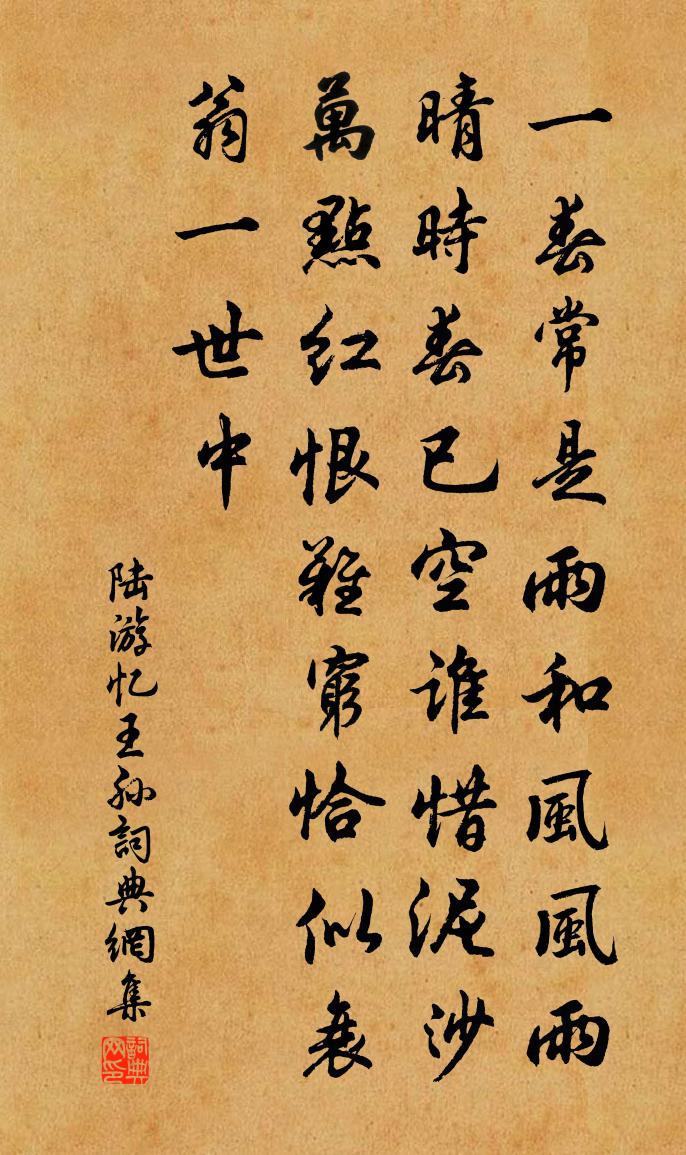 一春常是雨和風風雨
晴時春已空誰惜泥沙
萬點紅恨難窮恰似衰
翁一世中
陆游忆王孙詞典網集
詞典网印